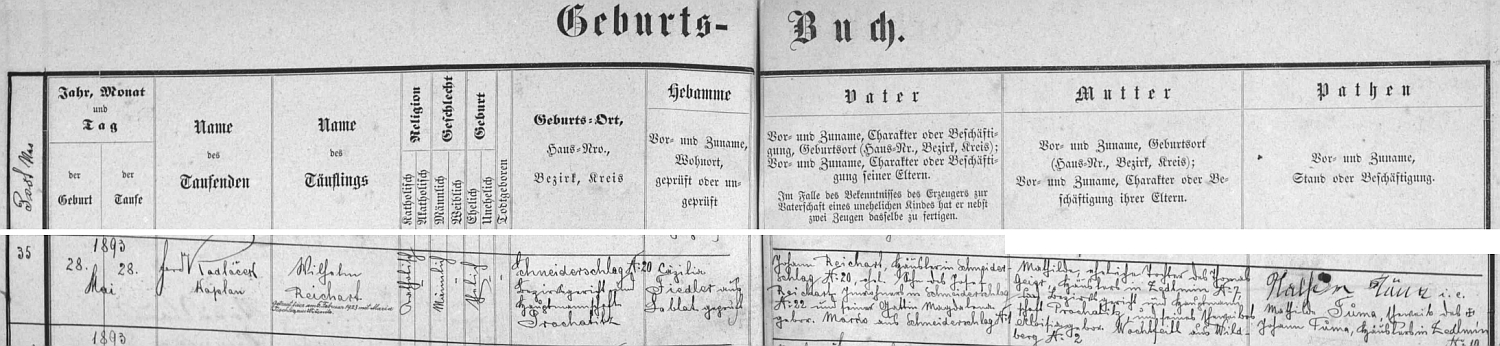 Geburts-Buch.
Post Nro
Jahr, Monat
und
Tag
der
Geburt
der
Taufe
Name
des
Taufenden
Name
des
Täuflings
Religion
Katholisch
Akatholisch
Geschlecht
Männlich
Weiblich
Geburt
Ehelich
Unehelich
Todtgeboren
Geburts-Ort,
Haus-Nro.,
Bezirk, Kreis
Hebamme
Vor- und Zuname,
Wohnort,
geprüft oder un-
geprüft
Vater
Vor- und Zuname, Charakter oder Beschäfti-
gung, Geburtsort (Haus-Nr., Bezirk, Kreis);
Vor- und Zuname, Charakter oder Beschäfti-
gung seiner Eltern.
Im Falle des Bekenntnisses des Erzeugers zur
Vaterschaft eines unehelichen Kindes hat er nebst
zwei Zeugen dasselbe zu fertigen.
Mutter
Vor- und Zuname, Geburtsort
(Haus-Nr., Bezirk, Kreis);
Vor- und Zuname, Charakter oder Be-
schäftigung ihrer Eltern.
Pathen
Vor- und Zuname,
Stand oder Beschäftigung.
35
1893
28.
28.
Mai
Ferd. Kadláček
Kaplan
Wilhelm
Reichart
Katholisch
Männlich
Ehelich
Schneiderschlag N: 20
Bezirksgericht und
Hauptmannschaft
Prachatitz
Cäzilia
Fiedler aus
Sablat geprüft
Johann Reichart, Häusler in Schneider-
schlag N: 20, ehl. Sohn des Josef
Reichart, Inwohner in Schneiderschlag
N: 22 und seiner Gattin Magda-
gebor. Marko aus Schneiderschlag N:
Mathilde, eheliche Tochter des Thomas
Geigr, Häuslers in Zedlmin N: 7,
Bezirksgericht und Hauptmann-
schaft Prachatitz und seines Eheweibes
gebor. Wachtfeitl aus Wild-
berg N: 2
i. e.
Mathilde Tůma, Eheweib des
Johann Tůma, Häuslers in Zedlmin
N: 10
1893